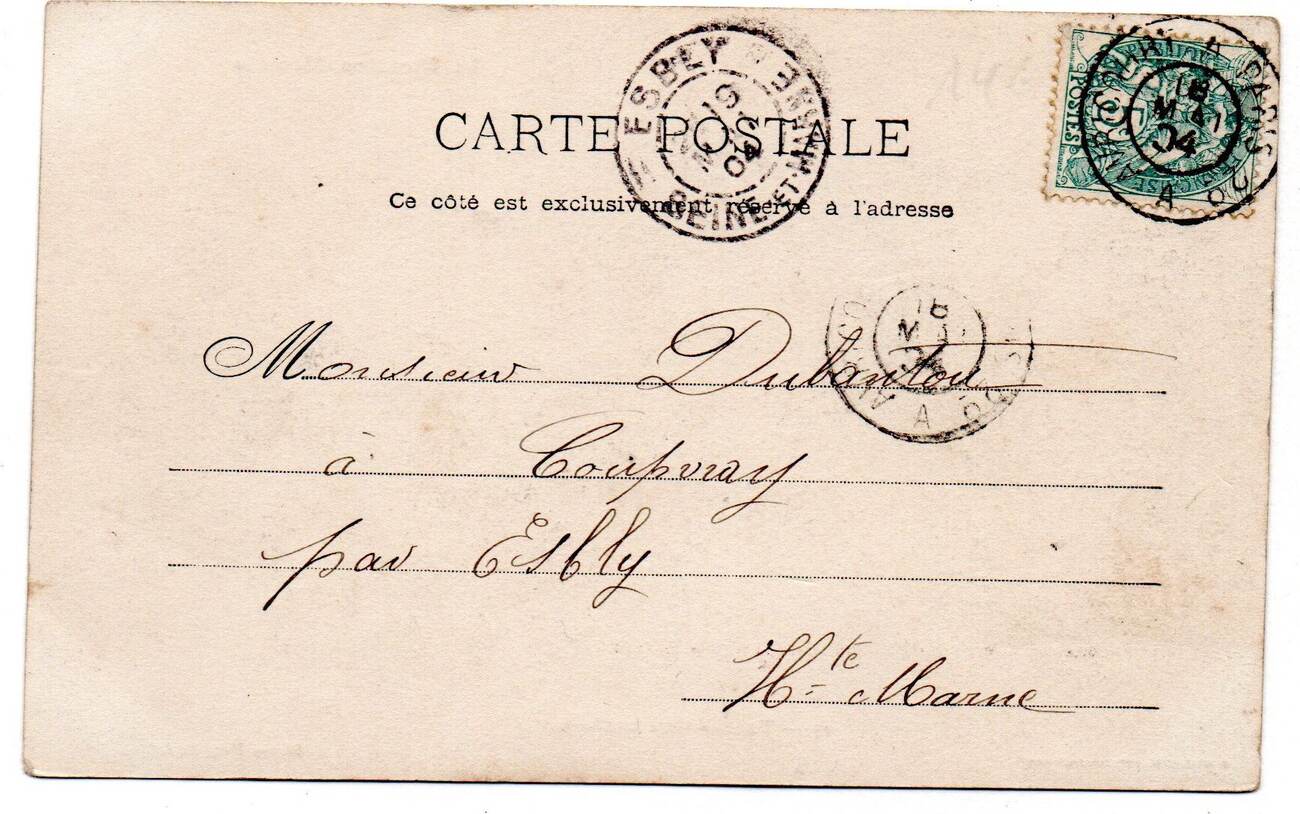 CARTE POSTALE
Ce côté est exclusivement réservé à l'adresse
ESBLY
SEINE-ET-MARNE
19
04
POSTES
PARIS
18
MAI
04
A
18
04
A
Monsieur Dubanton
à Coupvray
par Esbly
Hte Marne